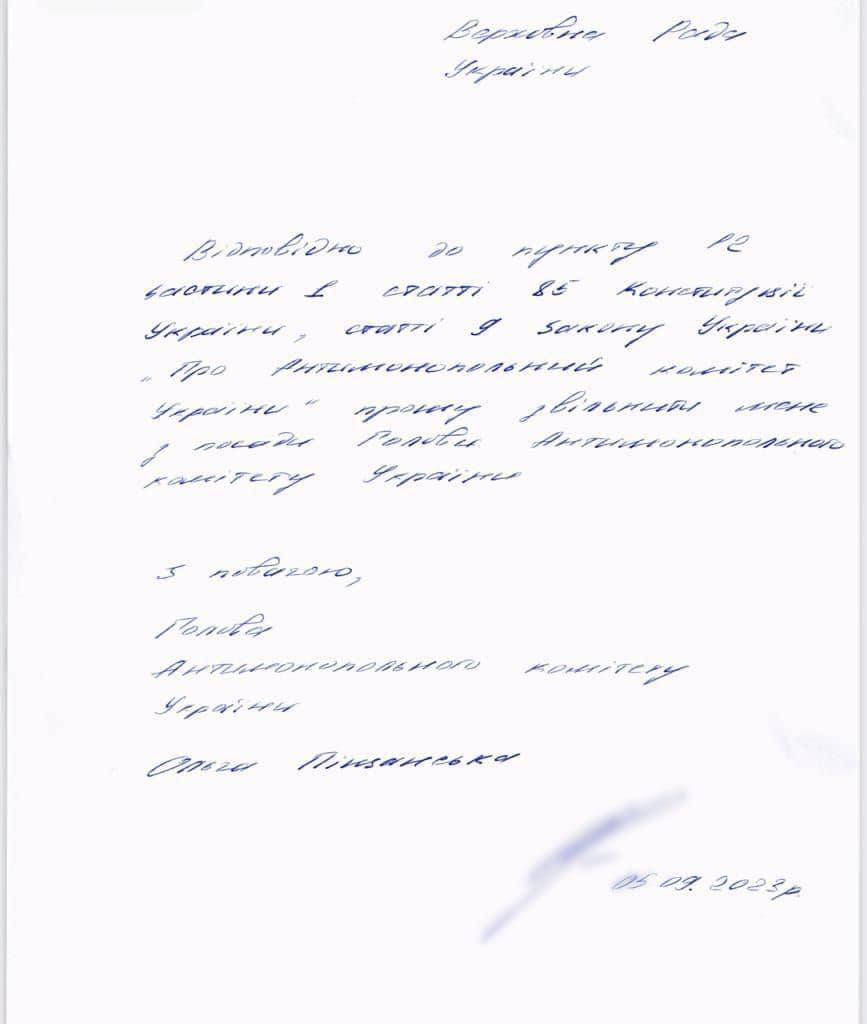 Верховна Рада
України
Відповідно до пункту 12
частини 1 статті 85 Конституції
України, статті 9 Закону України
„Про Антимонопольний комітет
України“ прошу звільнити мене
з посади Голови Антимонопольного
комітету України
З повагою,
Голова
Антимонопольного комітету
України
Ольга Піщанська
05 09. 2023р.